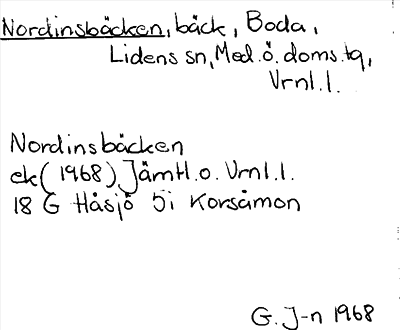 Nordinsbäcken, bäck, Boda,
Lidens sn, Med.ö.doms.tg,
Vrnl.l.
Nordinsbäcken
ek(1968) Jämtl.o.Vrnl.l.
18 G Håsjö 5i Korsåmon
G.J-n 1968